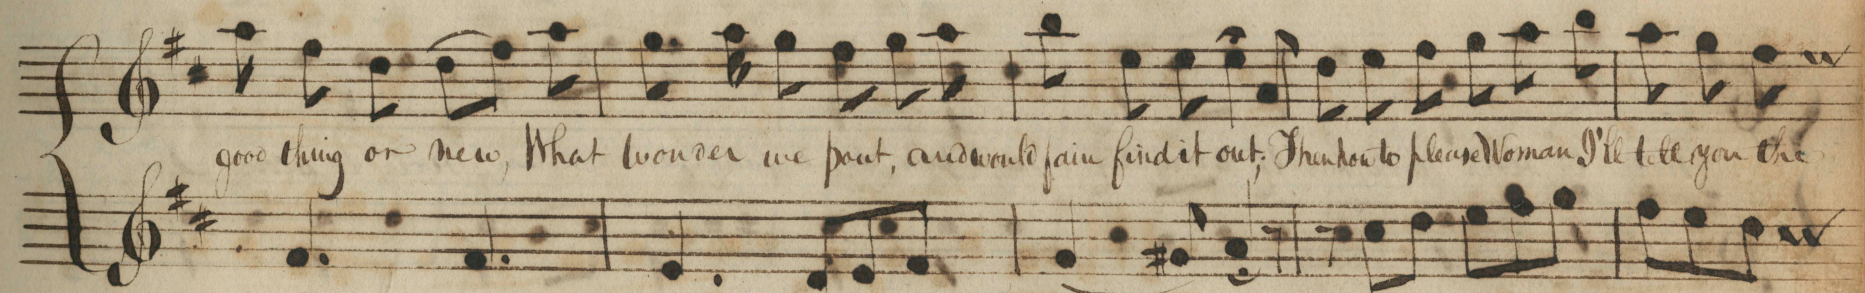 good thing or new, What wonder we pout, and would fain find it out; Then how to please Woman I'll tell you the